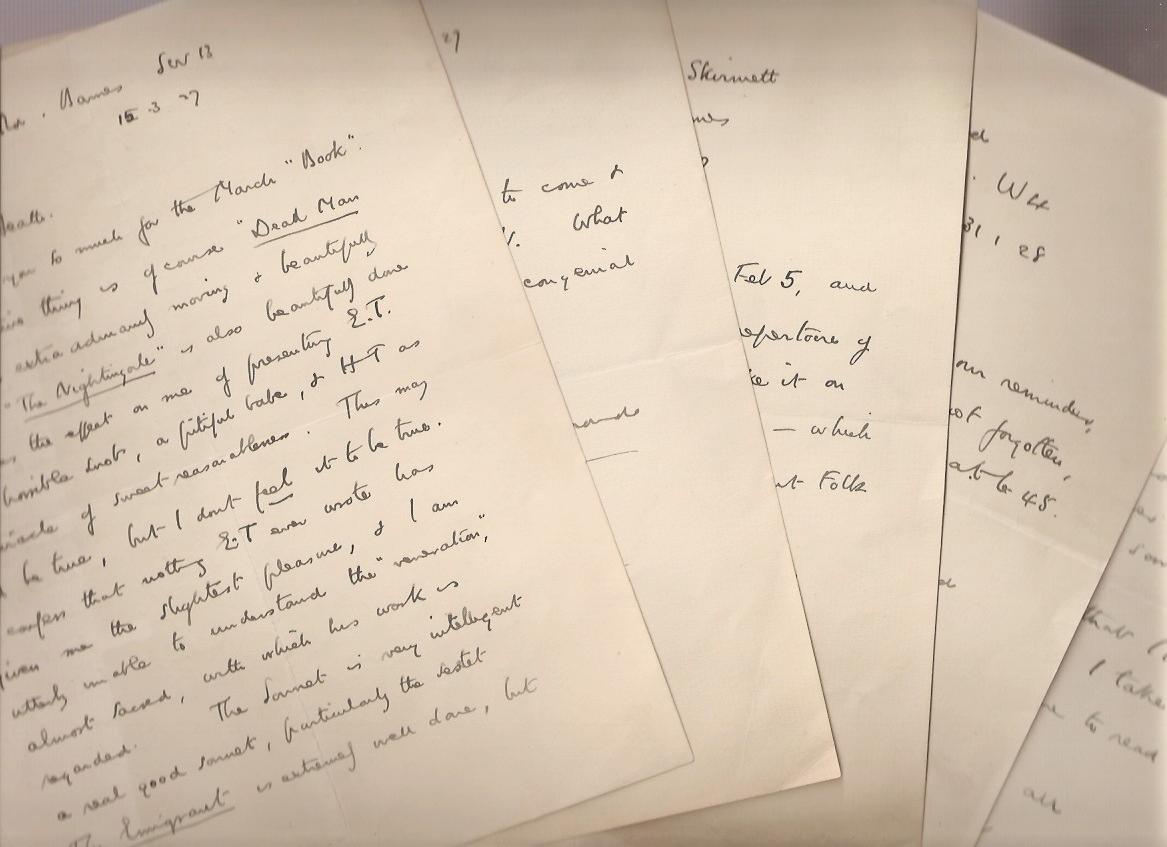 Barnes SW 13
15 3 27
you so much for the March "Book".
thing is of course "Dead Man
extraordinarily moving & beautifully
"The Nightingale" is also beautifully done
the effect on me of presenting E.T.
horrible snob, a pitiful babe, & HT as
of sweet reasonableness. This may
be true, but I dont feel it to be true.
confess that nothing E.T ever wrote has
given me the slightest pleasure, & I am
utterly unable to understand the "veneration",
almost sacred, with which his work is
regarded. The Sonnet is very intelligent
a real good sonnet, particularly the sestet
The Emigrant is extremely well done, but
27
to come &
What
congenial
Skirmett
Feb 5, and
repertoire of
it on
— which
Folk
W4
31 1 28
our reminders,
forgotten,
45.
that
I take
to read
all